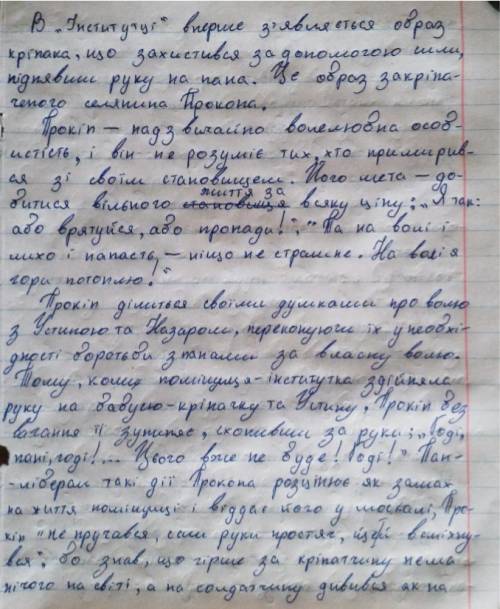 В „Інститутці" вперше з'являється образ
кріпака, що захистився за допомогою сили,
піднявши руку на пана. Це образ закріпа-
ченого селянина Прокопа.
Прокіп – надзвичайно волелюбна особ-
истість, і він не розуміє тих, хто примирив-
ся зі своїм становищем. Його мета – до-
життя за
битися вільного становища всяку ціну: „Я так:
або врятуйся, або пропади!"; "Та на волі і
лихо і напасть, – ніщо не страшне. На волі я
гори потоплю!"
Прокіп ділиться своїми думками про волю
з Устиною та Назаром, переконуючи їх у необхі-
дності боротьби з панами за власну волю.
Тому, коли поміщиця-інститутка здійняла
руку на бабусю-кріпачку та Устину, Прокіп без
вагання її зупиняє, схопивши за руки: „Годі,
пані, годі!... Цього вже не буде! Годі!" Пан-
-ліберал такі дії Прокопа розцінює як замах
на життя поміщиці і віддає його у москалі, Про-
кіп "не пручався, сам руки простяг, ще й всміхну-
вся", бо знав, що гірше за кріпатчину нема
нічого на світі, а на солдатчину дивився як на